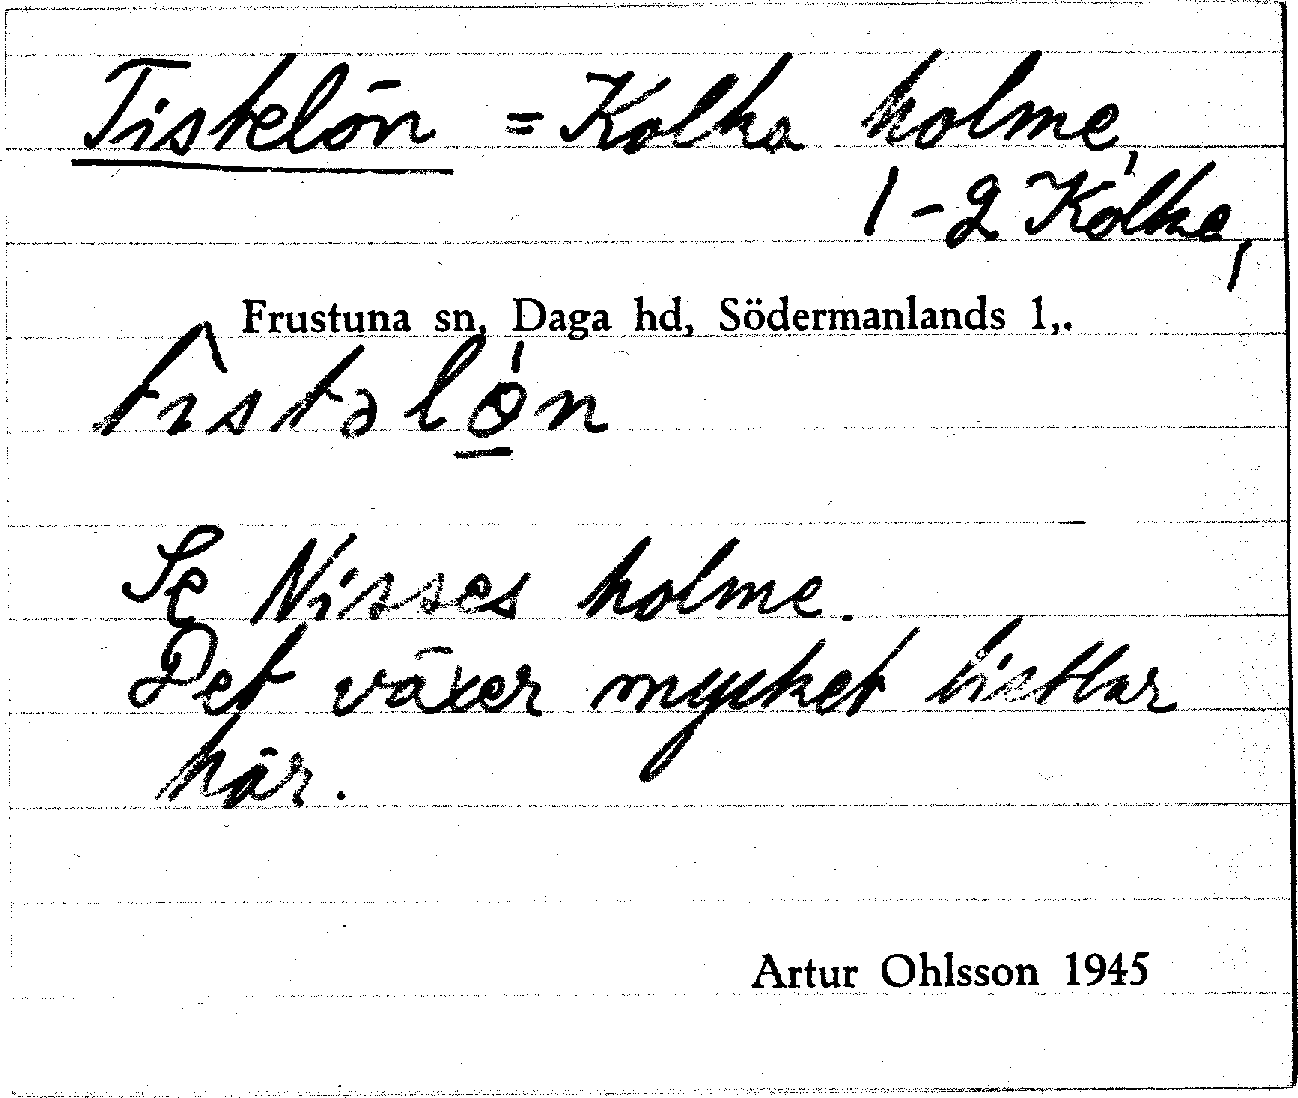 Tistelön = Kolka holme,
1-2 Kolka,
Frustuna sn, Daga hd, Södermanlands l,.
tìstəlǿ̠n
Se Nisses holme.
Det växer mycket tistlar
här.
Artur Ohlsson 1945